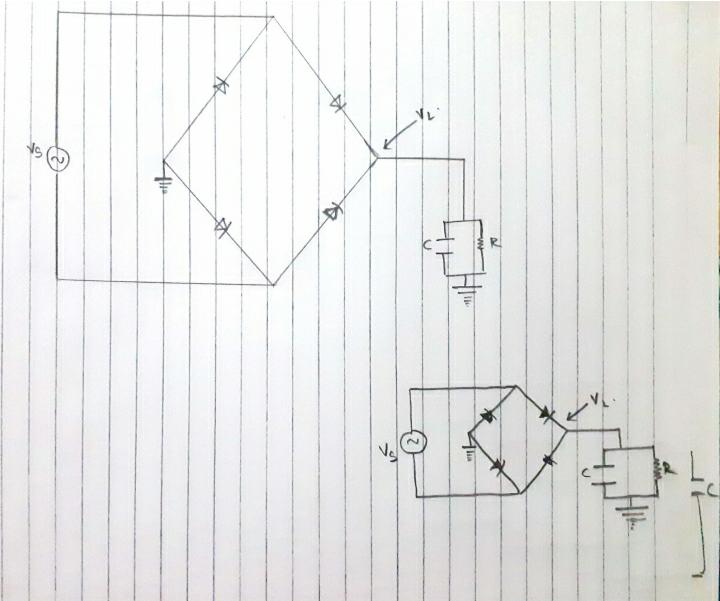 VL.
Vs
C R
VL.
Vs
C R C